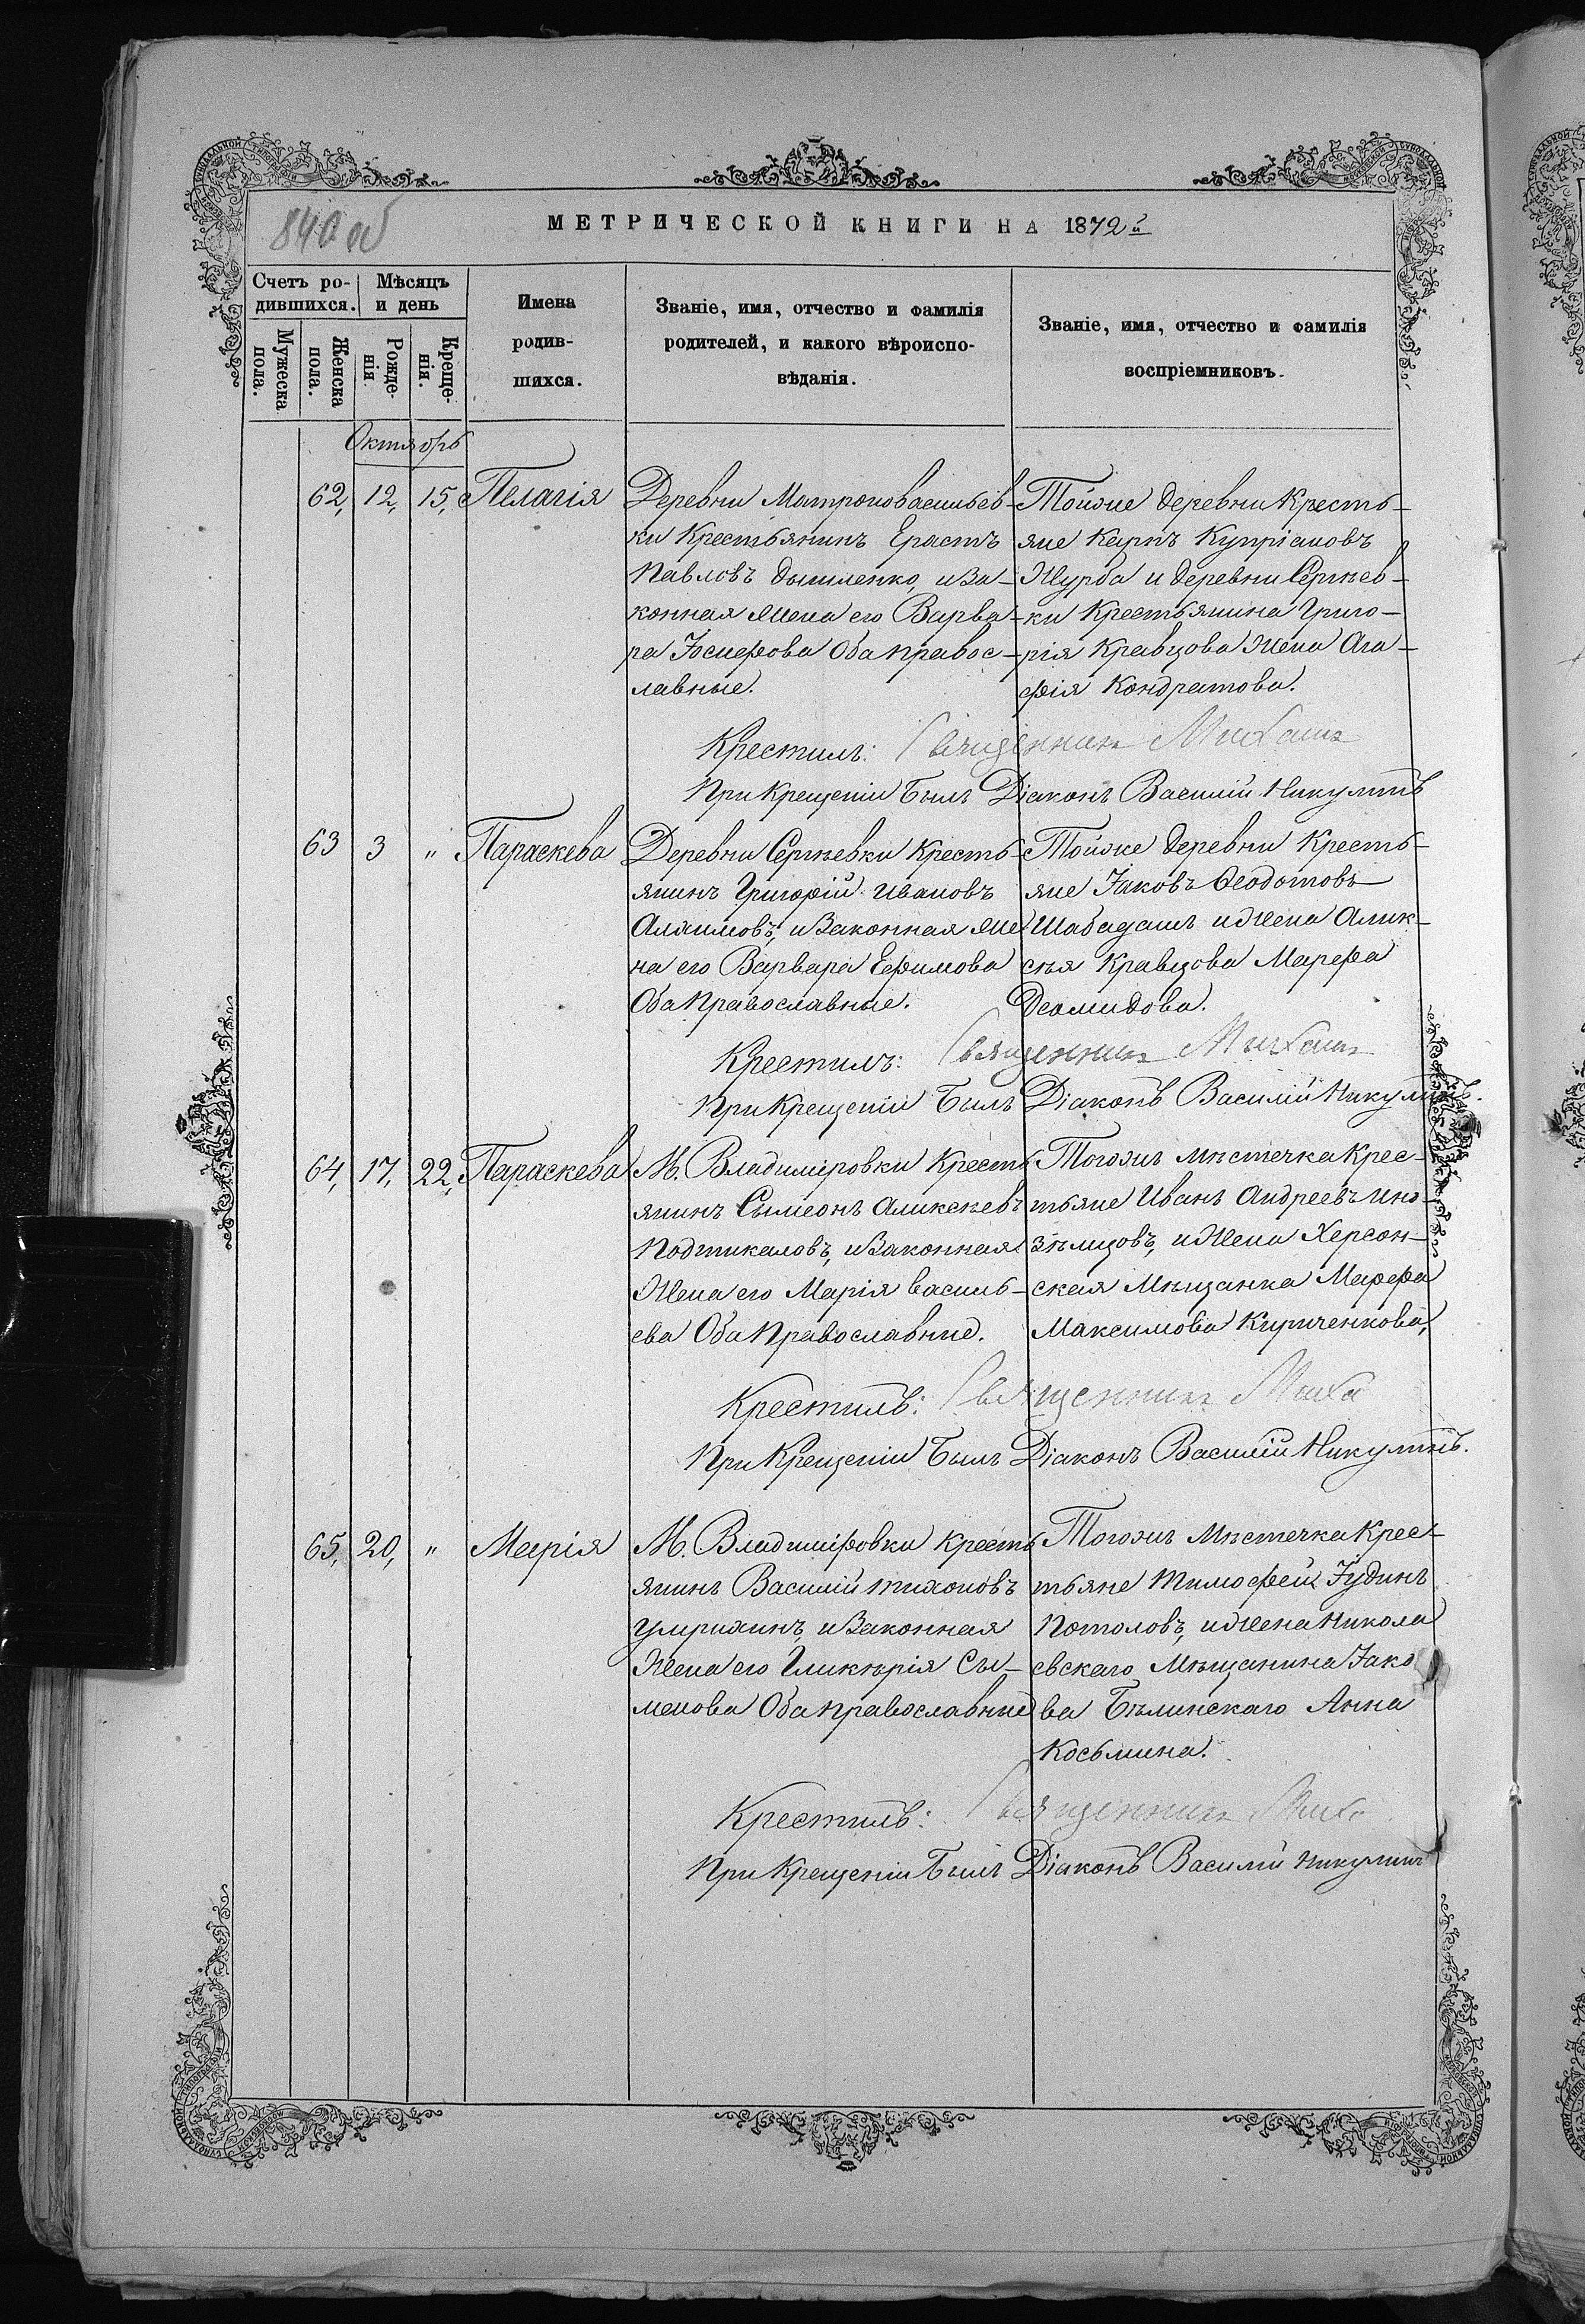 840 об
МЕТРИЧЕСКОЙ КНИГИ НА 1872й
Счетъ ро-
дившихся.
Мѣсяцъ
и день
Мужеска
пола.
Женска
пола.
Рожде-
нія
Креще-
нія.
Имена
родив-
шихся.
Званіе, имя, отчество и фамилія
родителей, и какого вѣроиспо-
вѣданія.
Званіе, имя, отчество и фамилія
воспріемниковъ.
Октябрь
62, 12, 15, Пелагія
Деревни Матроновасильев-
ки Крестьянинъ Ерастъ
Павловъ Дышленко, и За-
конная Жена его Варва-
ра Іосифова Оба правос-
лавные.
Тойже деревни Кресть-
яне Карпъ Купріановъ
Журба и деревни Сергѣев-
ки Крестьянина Григо-
рія Кравцова Жена Ага-
фія Кондратова.
Крестилъ: Священник Михаил
При Крещеніи Былъ Діаконъ Василій Никулинъ
63 3 " Параскева
Деревни Сергѣевки Кресть-
янинъ Григорій Ивановъ
Аляимовъ, и Законная Же
на его Варвара Ефимова
Оба Православные.
Тойже деревни Кресть-
яне Іаковъ Ѳеодотовъ
Шабадашъ и Жена Алик-
сѣя Кравцова Марфа
Деомидова.
Крестилъ: Священник Михаил
При Крещеніи Былъ Діаконъ Василій Никулинъ.
64, 17, 22, Параскева
М. Владиміровки Кресть
янинъ Сымеонъ Аликсѣевъ
Подтикаловъ, и Законная
Жена его Марія Василь-
ева Оба Православные.
Тогожъ Мѣстечка Крес-
тьяне Иванъ Андреевъ Ино-
зѣмцовъ, и Жена Херсон-
ская Мѣщанка Марфа
Максимова Кириченкова,
Крестилъ: Священник Миха
При Крещеніи Былъ Діаконъ Василій Никулинъ.
65, 20, " Марія
М. Владиміровки Кресть
янинъ Василій Тихоновъ
Умрихинъ, и Законная
Жена его Гликѣрія Сы-
менова Оба Православные
Тогожъ Мѣстечка Крес-
тьяне Тимофей Іудинъ
Потоловъ, и Жена Никола
евскаго Мѣщанина Іако
ва Бѣлинскаго Анна
Косьмина.
Крестилъ: Священник Миха
При Крещеніи Былъ Діаконъ Василій Никулинъ